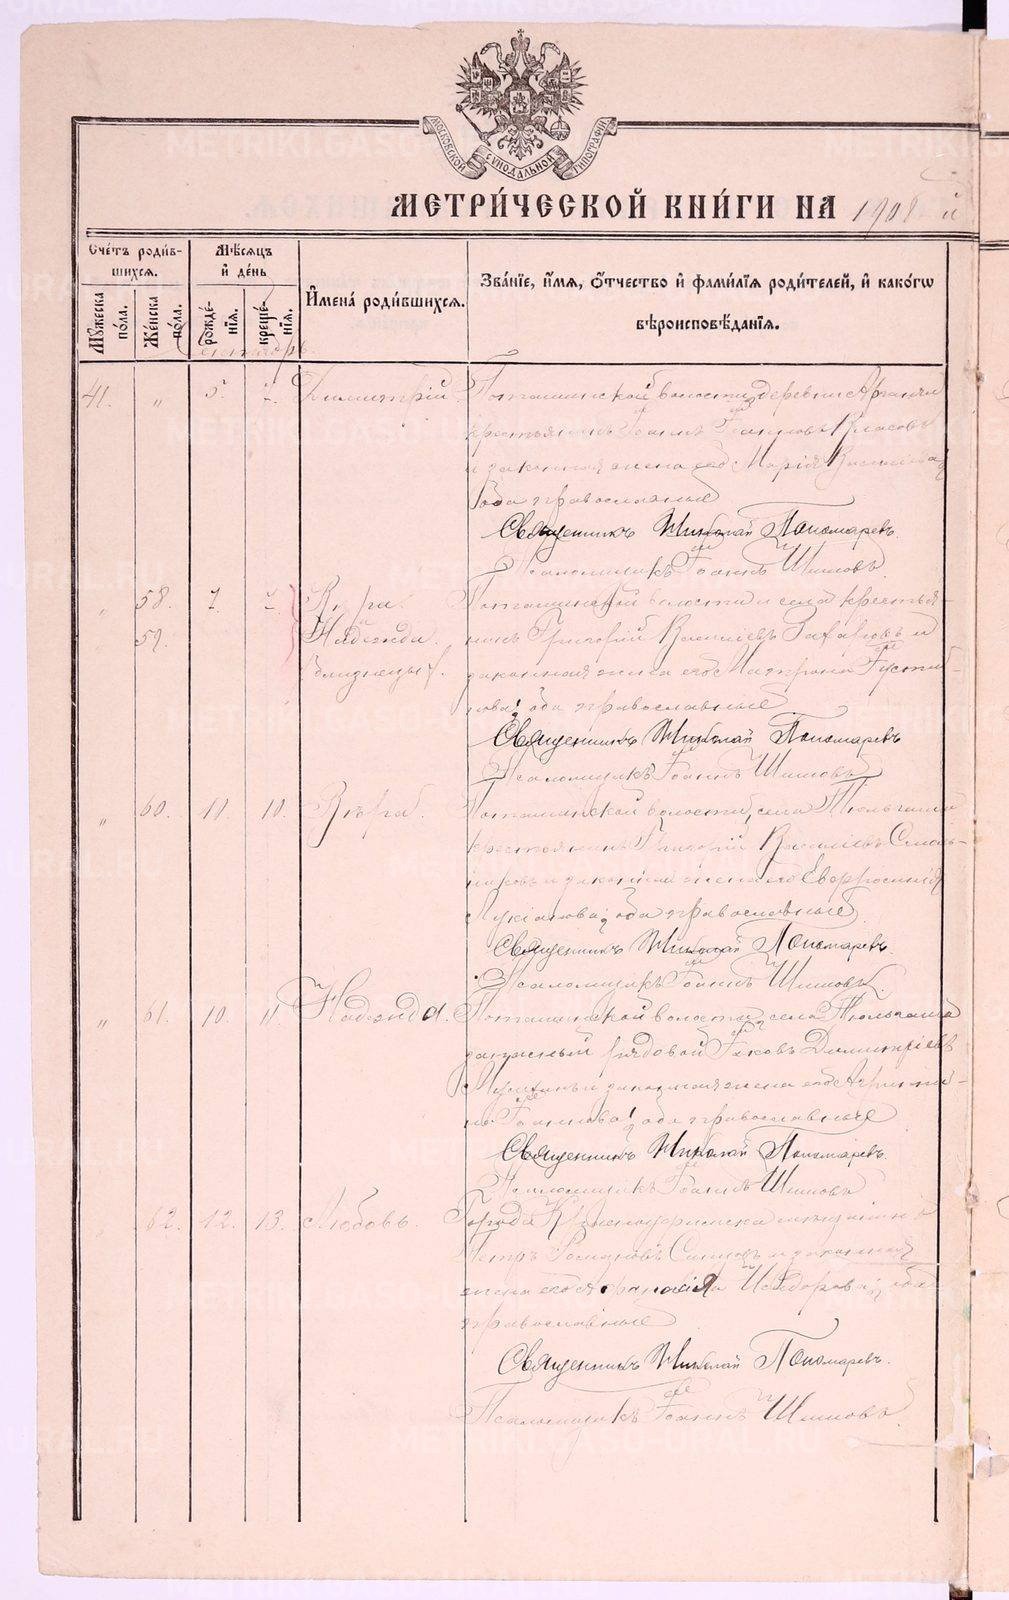 МОСКОВСКОЙ СУНОДАЛЬНОЙ ТИПОГРАФІИ
МЕТРИ́ЧЕСКОЙ КНИ́ГИ НА 1908 й
Сче́тъ роди́в-
шихсѧ.
Мꙋ́жеска по́ла.
Же́нска по́ла.
Мѣ́сѧцъ
и҆ де́нь
рожде́-нїѧ.
креще́-нїѧ.
И҆мена̀ роди́вшихсѧ.
Зва́нїе, и҆́мѧ, ѻ҆́тчество и҆ фами́лїѧ роди́телей, и҆ како́гѡ
вѣроисповѣ́данїѧ.
Сентябрь
41. " 5. 7. Димитрій. Поташинской волости, деревни
крестьянинъ Іоаннъ Іоанновъ Власовъ
и законная жена его Марія Василіева
оба православные
Священникъ Николай Пономаревъ.
Псаломщикъ Іоаннъ Шишовъ
" 58. 7. 7. Вѣра. Поташинской волости и села крестья-
59. Надежда. нинъ Григорій Василіевъ и
близнецы. законная жена его Матрона Іусти-
нова; оба православные
Священникъ Николай Пономаревъ
Псаломщикъ Іоаннъ Шишовъ
" 60. 10. 10. Вѣра. Поташинской волости, села
крестьянинъ Григорій Василіевъ
и законная жена его Евфросинія
Лукіанова; оба православные
Священникъ Николай Пономаревъ
Псаломщикъ Іоаннъ Шишовъ.
" 61. 10. 11. Надежда. Поташинской волости, села
запасный рядовой Іаковъ Димитріевъ
и законная жена его Агрипи-
на Іоаннова; оба православные
Священникъ Николай Пономаревъ.
Псаломщикъ Іоаннъ Шишовъ
62. 12. 13. Любовь. Города Красноуфимска мѣщанинъ
Петръ Романовъ и законная
жена его Исидорова; оба
православные
Священникъ Николай Пономаревъ.
Псаломщикъ Іоаннъ Шишовъ.
METRIKI.GASO-URAL.RU